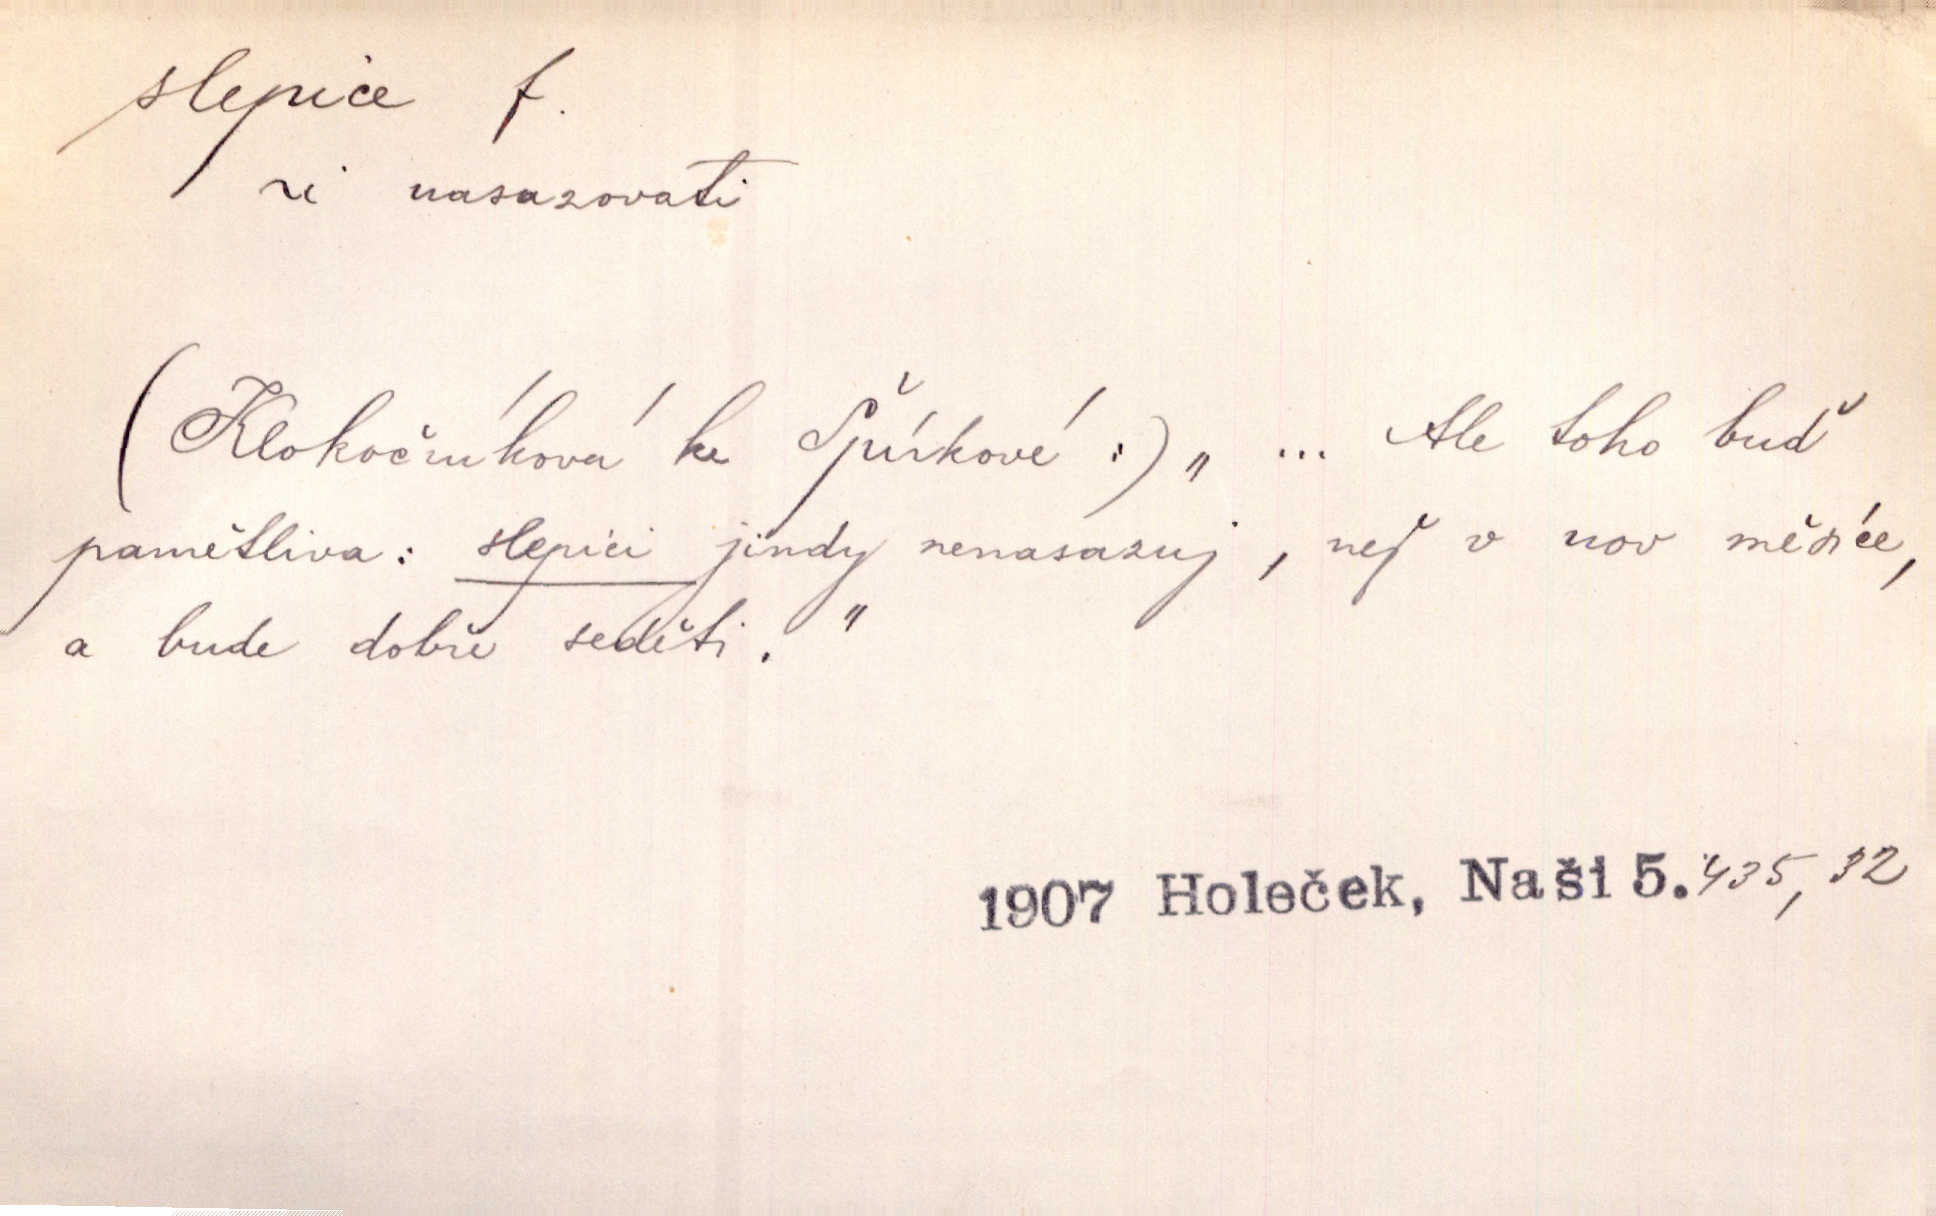 slepice f.
~i nasazovati
(Klokočníková ke Špírkové:) „ ... Ale toho buď
pamětliva: slepici jindy nenasazuj, než v nov měsíce,
a bude dobře seděti."
1907 Holeček, Naši 5. 435, 32